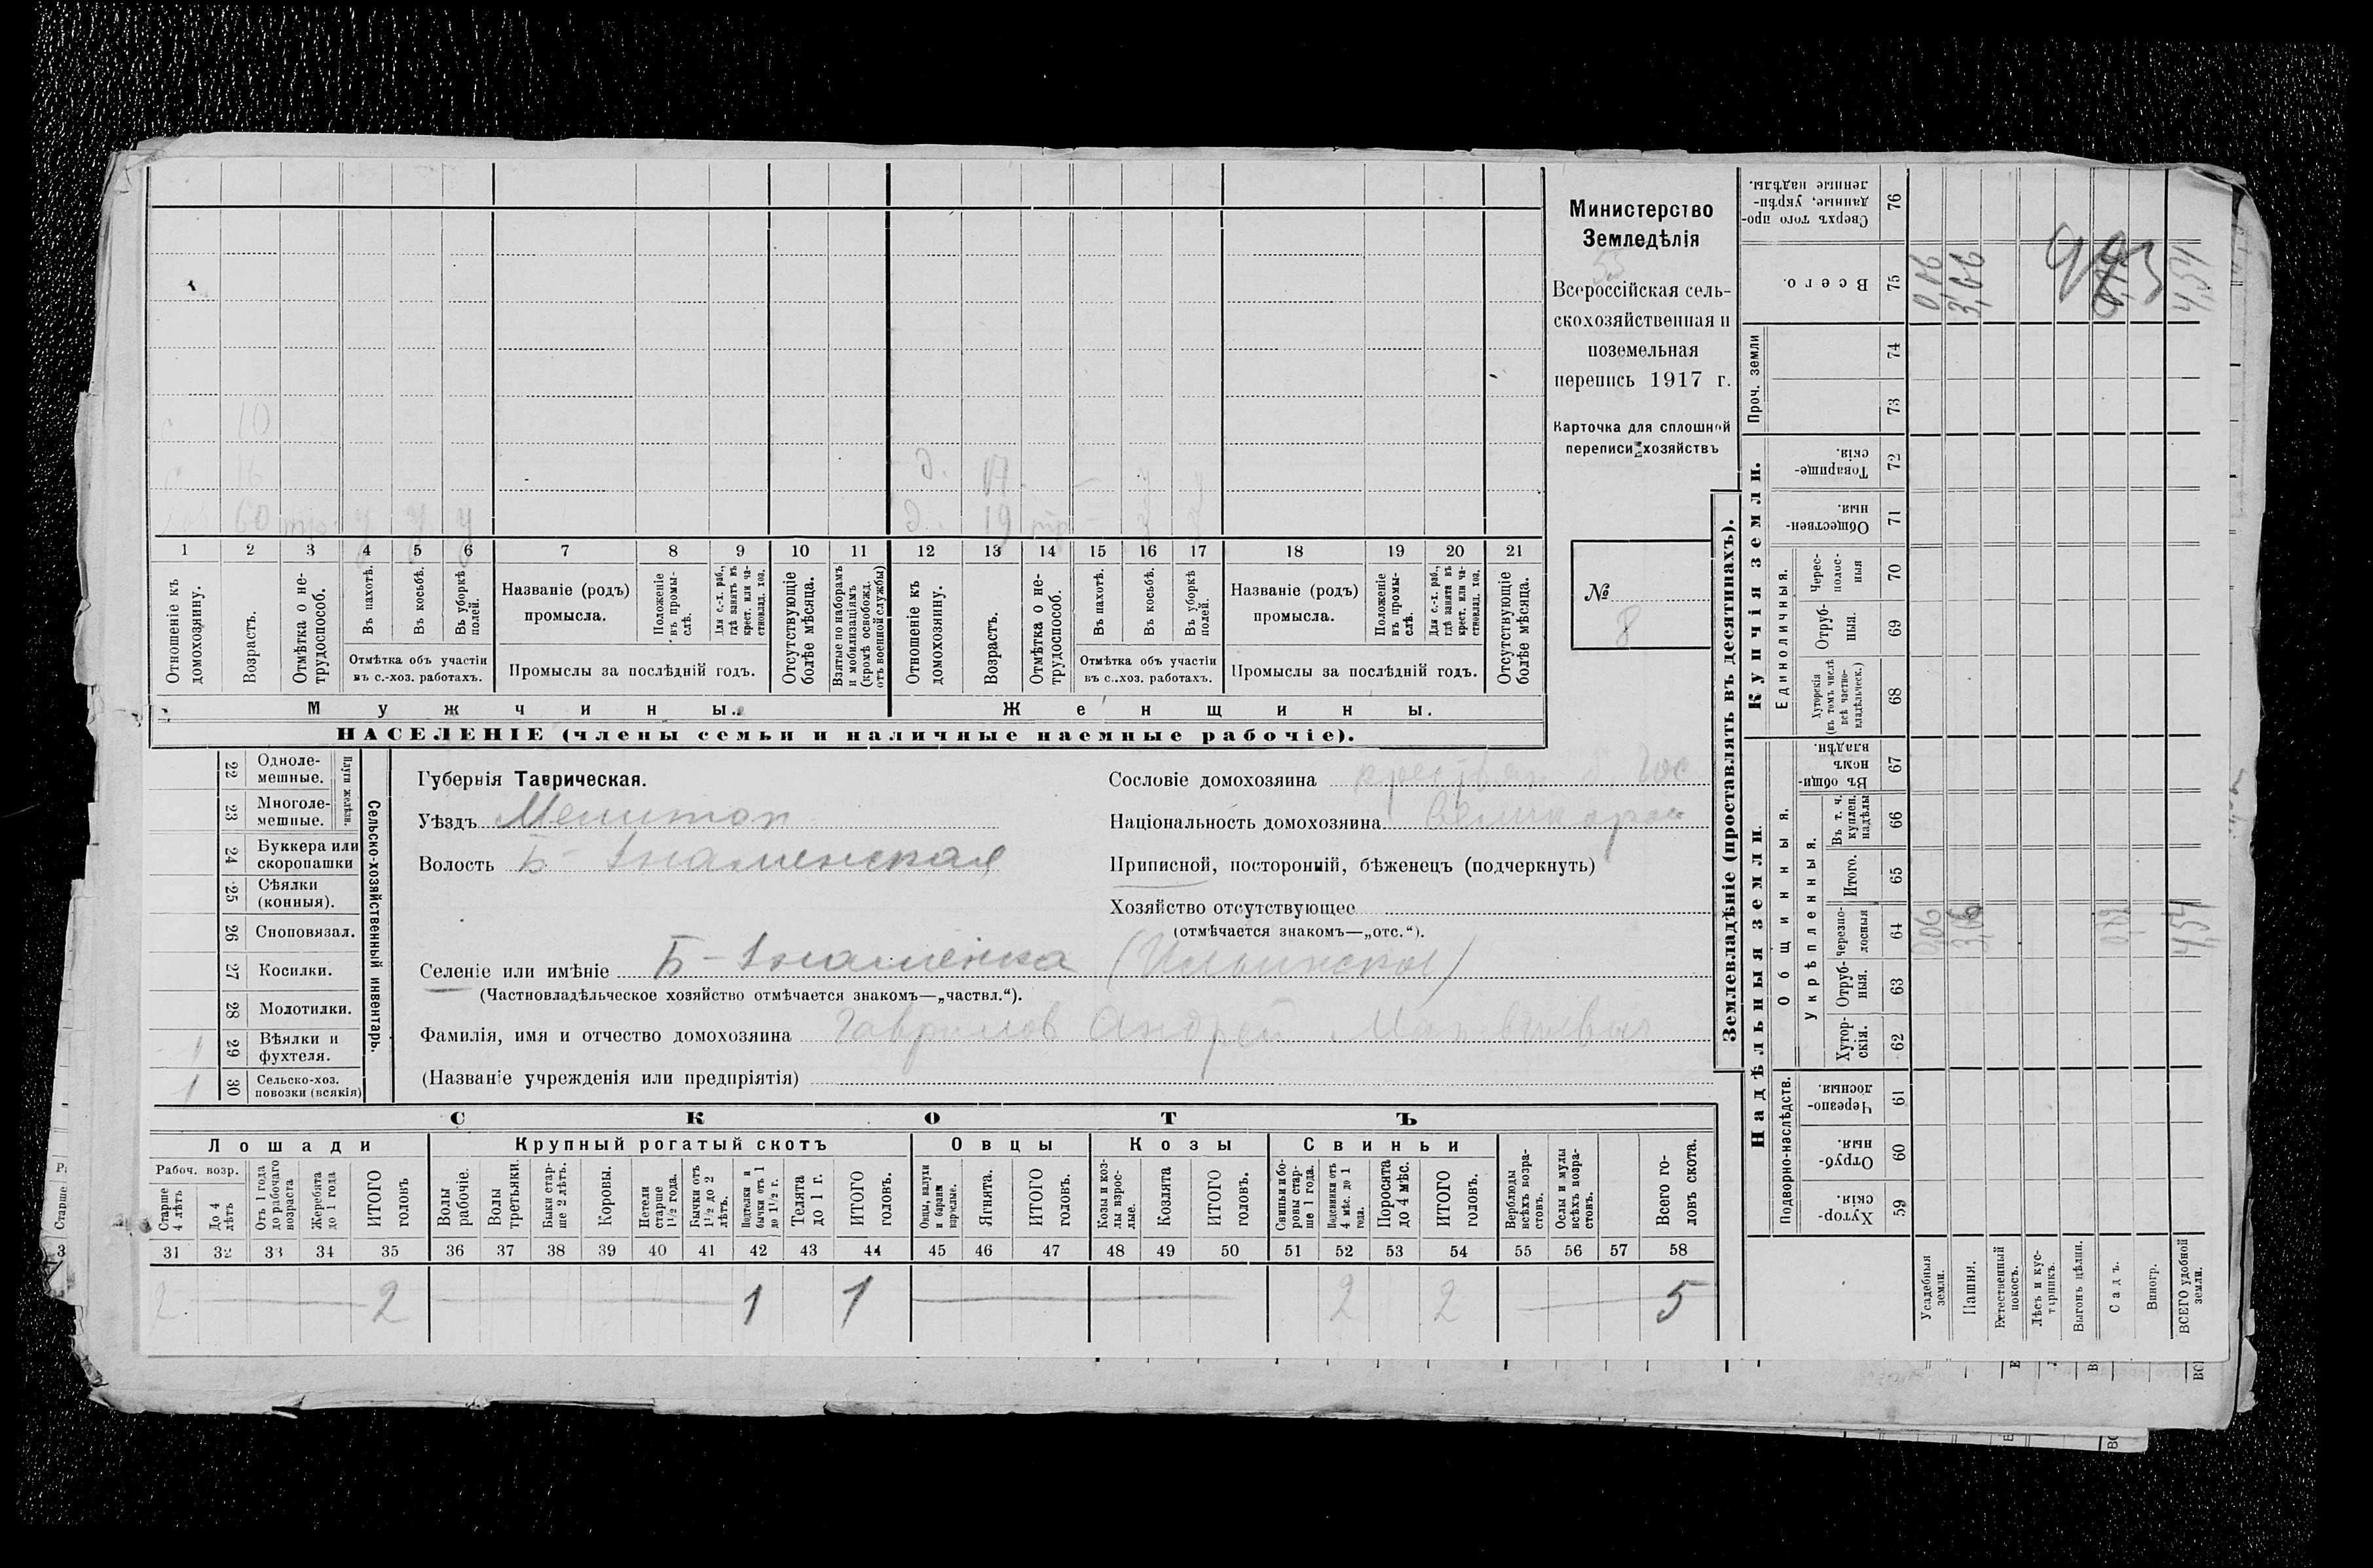 Министерство
Земледѣлія
53
Всероссійская сель-
скохозяйственная и
поземельная
перепись 1917 г.
Карточка для сплошной
переписи хозяйствъ
№
8
10
16
д. 17
60 у у у
д. 19
1 2 3 4 5 6 7 8 9 10 11 12 13 14 15 16 17 18 19 20 21
Отношеніе къ домохозяину.
Возрастъ.
Отмѣтка о не-трудоспособ.
Въ пахотѣ.
Въ косьбѣ.
Въ уборкѣ полей.
Отмѣтка объ участіи
въ с.-хоз. работахъ.
Названіе (родъ)
промысла.
Положеніе въ промы-слѣ.
Для с.-х. раб., гдѣ занятъ въ крест. или ча-стновлад. хоз.
Промыслы за послѣдній годъ.
Отсутствующіе болѣе мѣсяца.
Взятые по наборамъ и мобилизаціямъ (кромѣ освобожд. отъ военной службы)
Отношеніе къ домохозяину.
Возрастъ.
Отмѣтка о не-трудоспособ.
Въ пахотѣ.
Въ косьбѣ.
Въ уборкѣ полей.
Отмѣтка объ участіи
въ с..хоз. работахъ.
Названіе (родъ)
промысла.
Положеніе въ промы-слѣ.
Для с.-х. раб., гдѣ занята въ крест. или ча-стновлад. хоз.
Промыслы за послѣдній годъ.
Отсутствующіе болѣе мѣсяца.
Мужчины. Женщины.
НАСЕЛЕНІЕ (члены семьи и наличные наемные рабочіе).
22 Одноле-мешные.
23 Многоле-мешные.
Плуги желѣзн.
24 Буккера или скоропашки
25 Сѣялки (конныя).
26 Сноповязал.
27 Косилки.
28 Молотилки.
1 29 Вѣялки и фухтеля.
1 30 Сельско-хоз. повозки (всякія)
Сельско-хозяйственный инвентарь.
Губернія Таврическая.
Уѣздъ Мелитоп
Волость Б-Знаменская
Селеніе или имѣніе Б-Знаменка (Ильинское)
(Частновладѣльческое хозяйство отмѣчается знакомъ—„частвл.“).
Фамилія, имя и отчество домохозяина Гаврилов Андрей
(Названіе учрежденія или предпріятія)
Сословіе домохозяина
Національность домохозяина Великорос
Приписной, посторонній, бѣженецъ (подчеркнуть)
Хозяйство отсутствующее
(отмѣчается знакомъ—„отс.“).
СКОТЪ
Лошади Крупный рогатый скотъ Овцы Козы Свиньи
Рабоч. возр.
Старше 4 лѣтъ
До 4 лѣтъ
Отъ 1 года до рабочаго возраста
Жеребята до 1 года
ИТОГО головъ
Волы рабочіе.
Волы третьяки.
Быки стар-ше 2 лѣтъ.
Коровы.
Нетели старше 1½ года.
Бычки отъ 1½ до 2 лѣтъ.
Подтелки и бычки отъ 1 до 1½ г.
Телята до 1 г.
ИТОГО головъ.
Овцы, валухи и бараны взрослые.
Ягнята.
ИТОГО головъ.
Козы и коз-лы взрос-лые.
Козлята
ИТОГО головъ.
Свиньи и бо-ровы стар-ше 1 года.
Подсвинки отъ 4 мѣс. до 1 года.
Поросята до 4 мѣс.
ИТОГО головъ.
Верблюды всѣхъ возра-стовъ.
Ослы и мулы всѣхъ возра-стовъ.
Всего го-ловъ скота.
31 32 33 34 35 36 37 38 39 40 41 42 43 44 45 46 47 48 49 50 51 52 53 54 55 56 57 58
2 2 1 1 2 2 5
Землевладѣніе (проставлять въ десятинахъ).
Надѣльныя земли. Купчія земли. Проч. земли
Подворно-наслѣдств.
Общинныя.
Укрѣпленныя.
Единоличныя.
Хутор-скія. 59
Отруб-ныя. 60
Черезпо-лосныя. 61
Хутор-скія. 62
Отруб-ныя. 63
Черезпо-лосныя 64
Итого. 65
Въ т. ч. куплен. надѣлы 66
Въ общи-номъ владѣн. 67
Хуторскія (въ томъ числѣ всѣ частно-владѣльческ.) 68
Отруб-ныя. 69
Черес-полос-ныя 70
Обществен-ныя. 71
Товарище-скія. 72
73
74
Всего. 75
Сверхъ того про-данные, укрѣп-ленные надѣлы. 76
Усадебныя земли. 0,06 0,06
Пашня. 3,06 3,06
Естественный покосъ.
Лѣсъ и кус-тарникъ.
Выгонъ цѣлин.
Садъ.
Виногр.
ВСЕГО удобной земли. 4,54 4,54
943